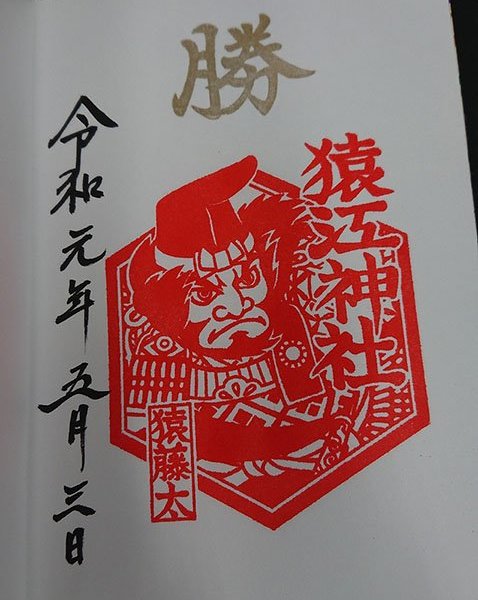 勝
猿江神社
猿藤太
令和元年五月三日